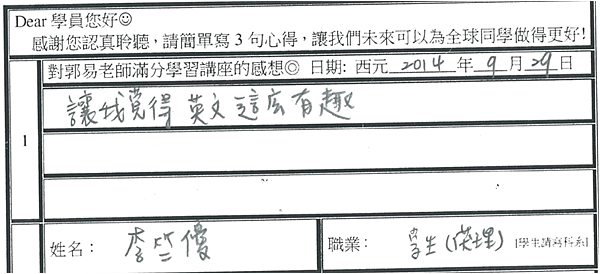 Dear 學員您好☺
感謝您認真聆聽，請簡單寫 3 句心得，讓我們未來可以為全球同學做得更好!
對郭易老師滿分學習講座的感想◎ 日期: 西元 2014 年 9 月 29 日
1
讓我覺得 英文 這麼有趣
姓名： 李竺優
職業： 學生 (英理) [學生請寫科系]